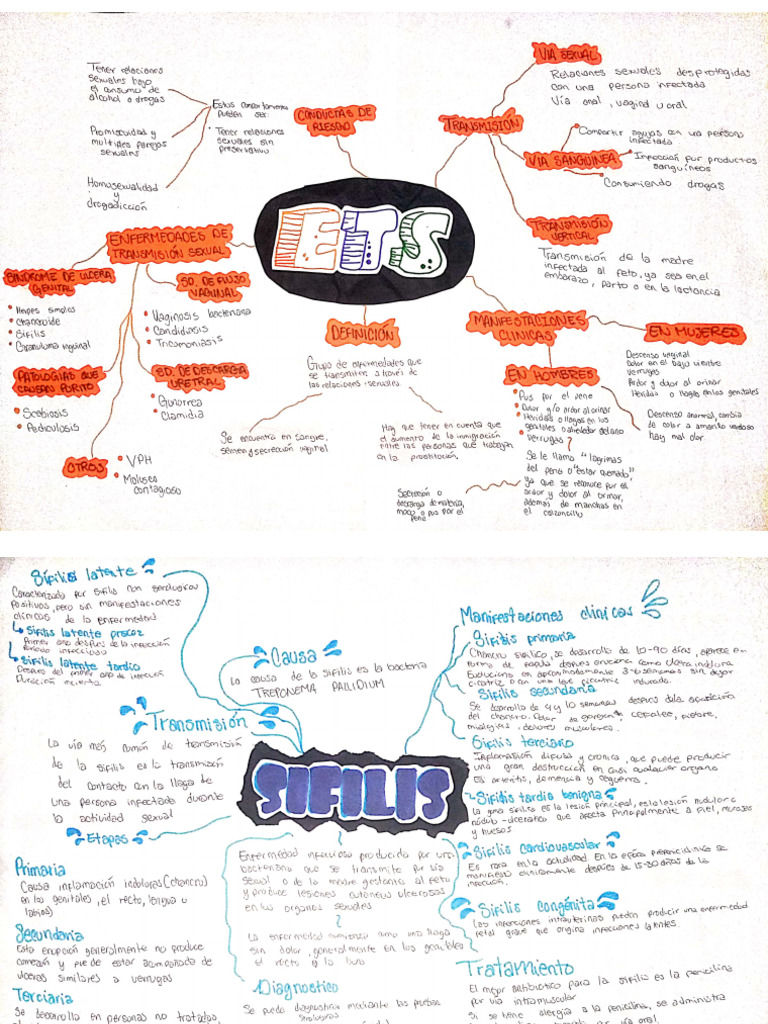 Tener relaciones
sexuales bajo
el consumo de
alcohol o drogas
Promiscuidad y
multiples parejas
sexuales
Homosexualidad
y
drogadicción
Estos comportamientos
pueden ser:
• Tener relaciones
sexuales sin
preservativo
CONDUCTAS DE
RIESGO
TRANSMISIÓN
VIA SEXUAL
Relaciones sexuales desprotegidas
con una persona infectada
Vía anal, vaginal u oral
VIA SANGUINEA
Compartir agujas con una persona
infectada
Infección por productos
sanguíneos
Consumiendo drogas
TRANSMISIÓN
VERTICAL
Transmisión de la madre
infectada al feto, ya sea en el
embarazo, parto o en la lactancia
ETS
ENFERMEDADES DE
TRANSMISIÓN SEXUAL
SINDROME DE ULCERA
GENITAL
• Herpes simples
• Chancroide
• Sifilis
• Granuloma inguinal
SD. DE FLUJO
VAGINAL
• Vaginosis bacteriana
• Candidiosis
• Tricomoniasis
PATOLOGIAS QUE
CAUSAN PURITO
• Scabiosis
• Pediculosis
SD. DE DESCARGA
URETRAL
• Gonorrea
• Clamidia
OTROS
• VPH
• Molusco
contagioso
DEFINICIÓN
Grupo de enfermedades que
se transmiten a través de
las relaciones sexuales.
Se encuentra en sangre,
semen y secreción vaginal
Hay que tener en cuenta que
el aumento de la inmigración
entre las personas que trabajan
en la prostitución.
MANIFESTACIONES
CLINICAS
EN HOMBRES
• Pus por el pene
• Dolor y/o ardor al orinar
• Heridas o llagas en los
genitales o alrededor del ano
• Verrugas
Se le llama "lagrimas
del pene o "estar quemado",
ya que se reconoce por el
ardor y dolor al orinar,
ademas de manchas en
el calzoncillo
Secreción o
descarga de materia,
moco o pus por el
pene
EN MUJERES
Descenso vaginal
Dolor en el bajo vientre
Verrugas
Ardor y dolor al orinar
Heridas o llagas en los genitales
Descenso anormal, cambia
de color a amarillo verdoso
hay mal olor
Sífilis latente
Caracterizada por sifilis con serologicas
positivas, pero sin manifestaciones
clínicas de la enfermedad
Sifilis latente precoz
Primer año despues de la infección
Periodo infeccioso
Sifilis latente tardia
Despues del primer año de infección
Duración incierta
Causa
La causa de la sifilis es la bacteria
TREPONEMA PALLIDIUM
Transmisión
La via más común de transmisión
de la sifilis es la transmisión
del contacto con la llaga de
una persona infectada durante
la actividad sexual
Etapas
Primaria
Causa inflamación indolora (chancro)
en los genitales, el recto, lengua o
labios)
Secundaria
Esta erupción generalmente no produce
comezón y puede estar acompañada de
ulceras similares a verrugas
Terciaria
Se desarrolla en personas no tratadas,
SIFILIS
Enfermedad infecciosa producida por una
bacteriana que se transmite por via
sexual o de la madre gestante al feto
y produce lesiones cutaneas ulcerosas
en los organos sexuales
La enfermedad comienza como una llaga
sin dolor, generalmente en los genitales
el recto y la boca
Diagnostico
Se puede diagnosticar mediante las pruebas
Manifestaciones clinicas
Sifilis primaria
Chancro sifilico, se desarrolla de 10-90 días, aparece en
forma de papula
Evoluciona en aproximadamente 3-6 semanas sin dejar
cicatriz o con una leve cicatriz indurada.
Sifilis secundaria
Se desarrolla de 4 y 10 semanas despues de la aparición
del chancro. Dolor de garganta, cefalea, fiebre,
mialgias, dolores musculares.
Sífilis terciaria
Inflamación difusa y cronica, que puede producir
una gran destrucción en casi cualquier organo
Es arteritis, demencia y ceguera.
Sifilis tardia benigna
La goma sifilis es la lesión principal, esta lesión nodular o
nódulo - ulcerativa que afecta principalmente a piel, mucosas
y huesos
Sifilis cardiovascular
Es rara en la actualidad En la epoca prepenicilinica se
manifiesto clinicamente después de 15-30 años de la
infección.
Sifilis congénita
Las infecciones intrauterinas pueden producir una enfermedad
fetal grave que origina infecciones latentes.
Tratamiento
El mejor antibiotico para la sifilis es la penicilina
por via intramuscular
Si se tiene alergia a la penicilina, se administra
via oral.